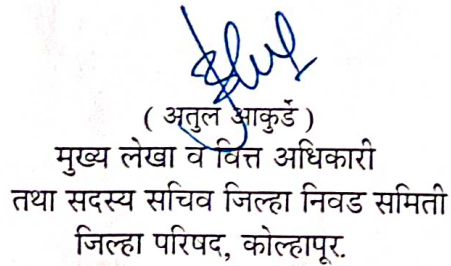 ( अतुल आकुर्डे )
मुख्य लेखा व वित्त अधिकारी
तथा सदस्य सचिव जिल्हा निवड समिती
जिल्हा परिषद, कोल्हापूर.